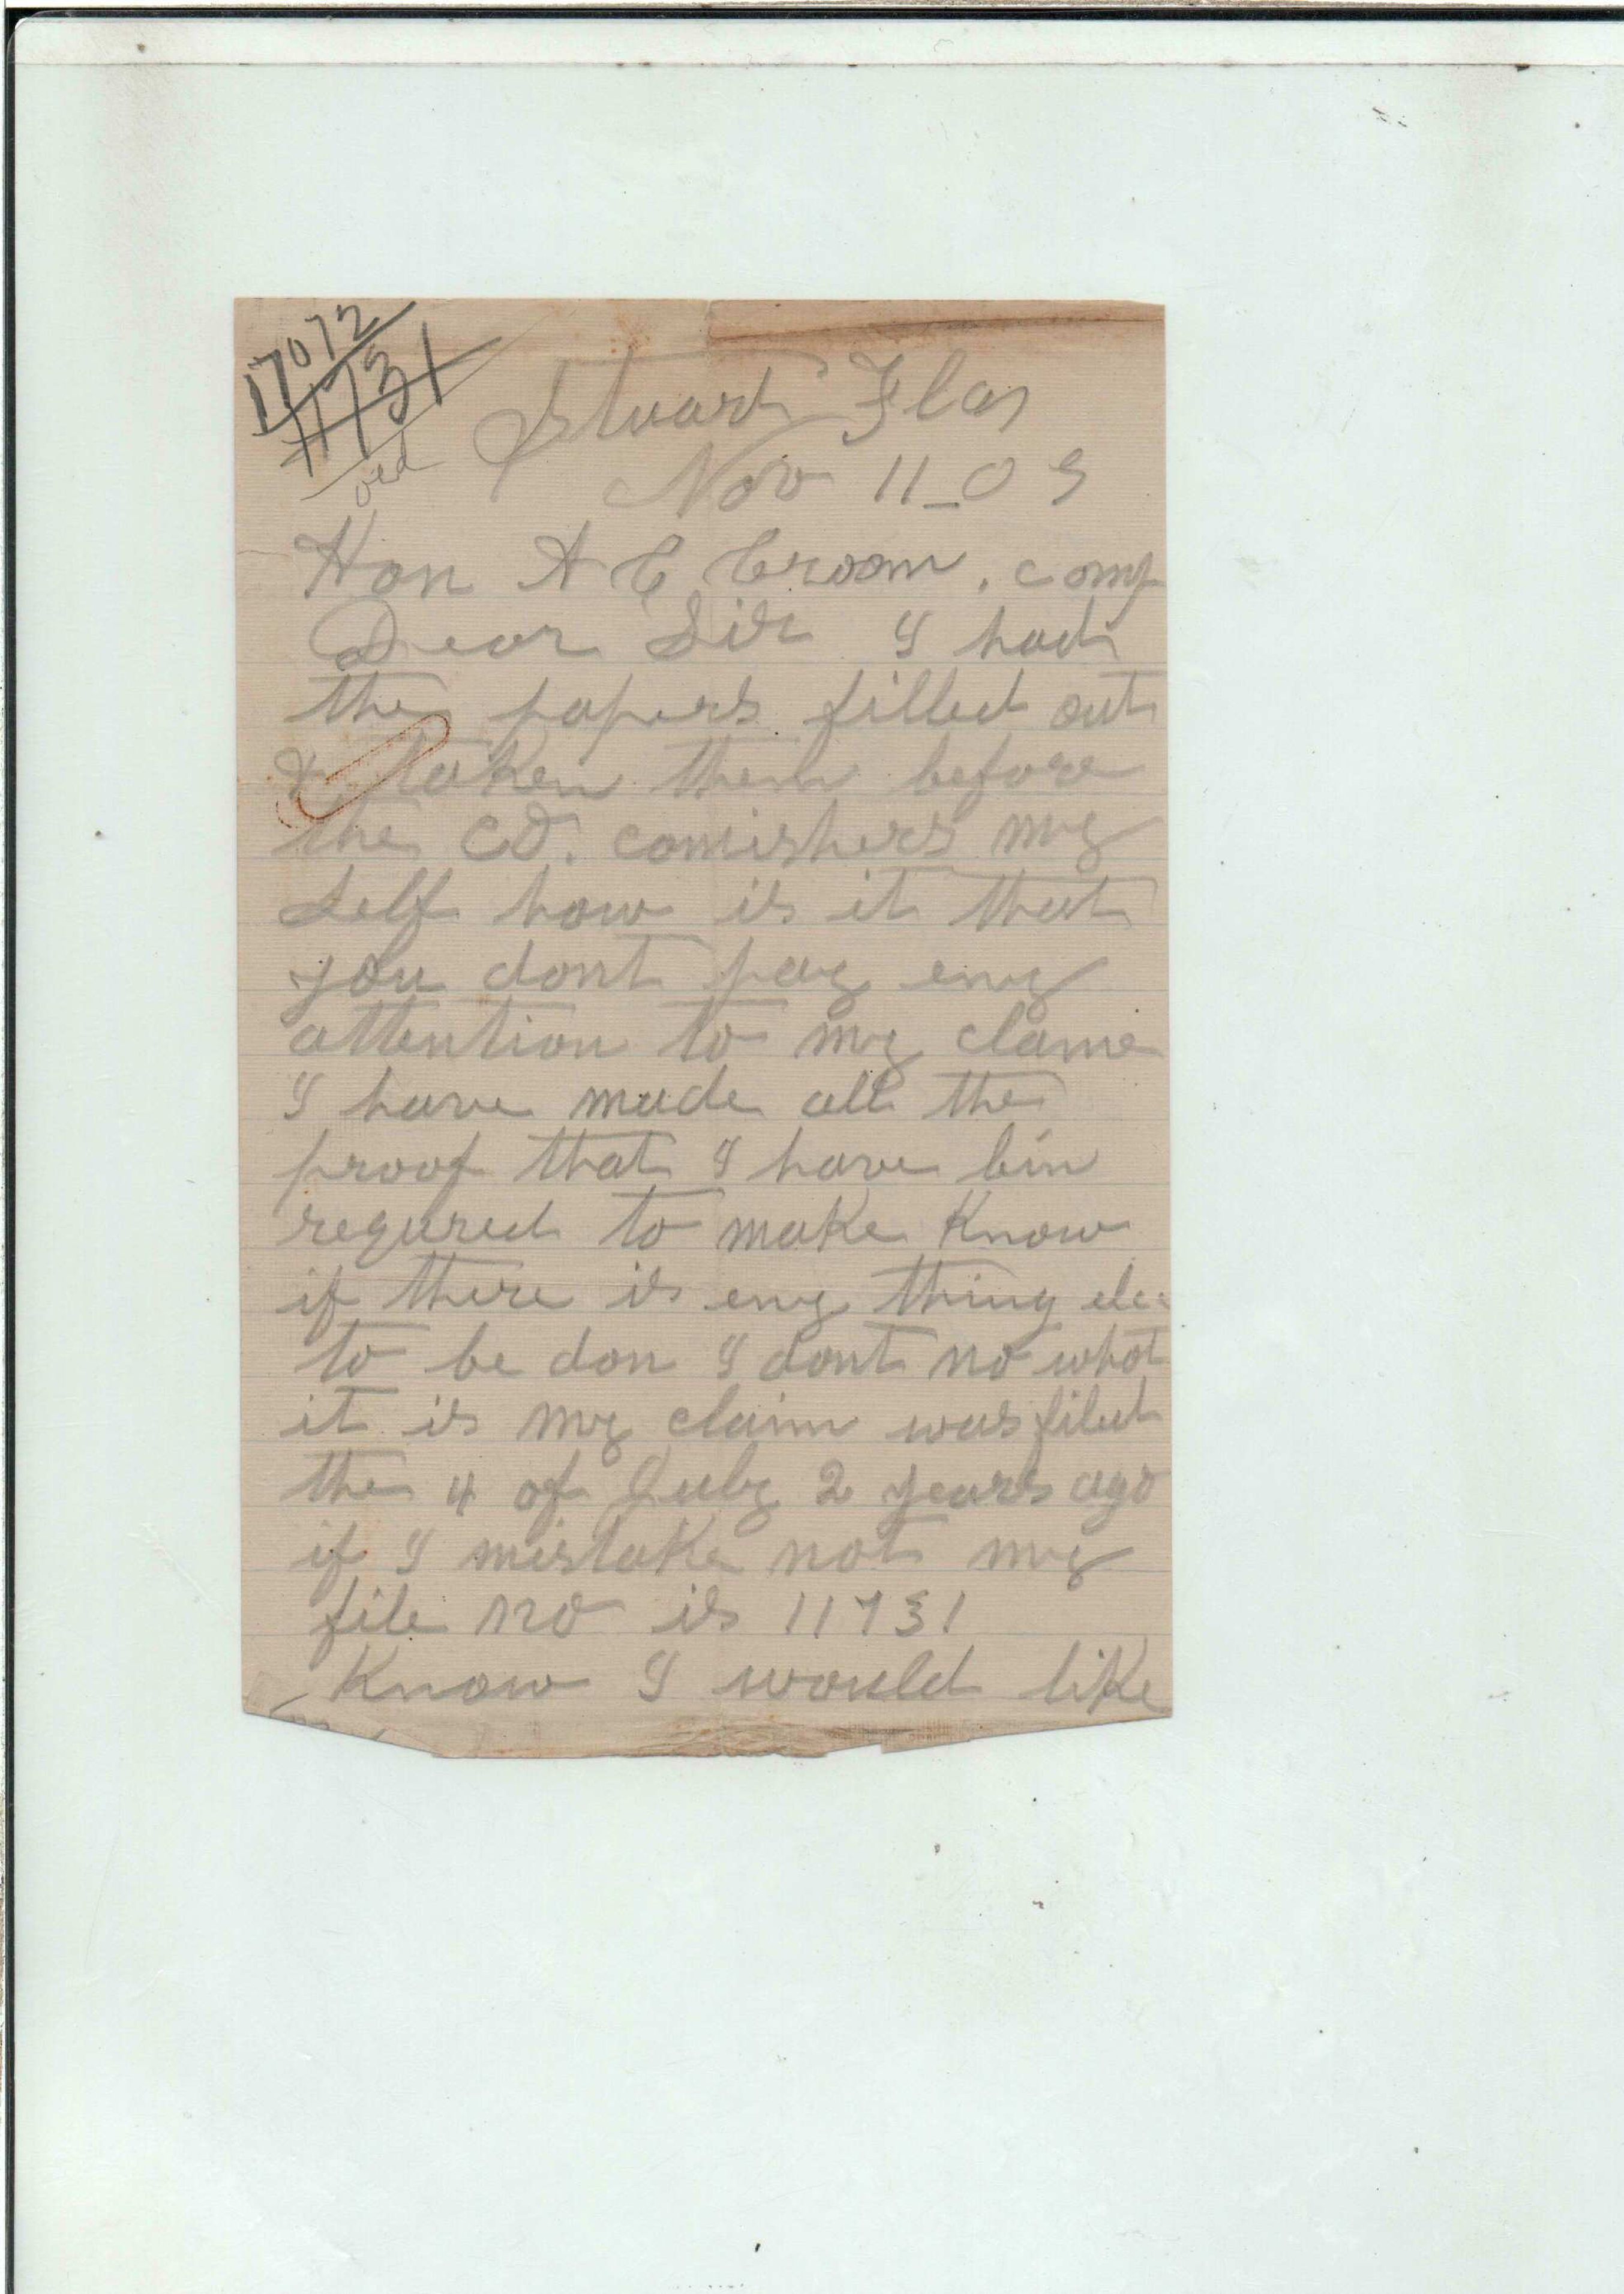 17072
11731
old
Stuart Fla
Nov 11_09
Hon A C Croom. comp
Dear Sir I had
the papers filled out
& taken them before
the CO. comishers my
self how is it that
you dont pay eny
attention to my clame
I have made all the
proof that I have bin
requred to make Know
if there is eny thing els
to be don I dont no what
it is my claim was filed
the 4 of July 2 years ago
if I mistake not my
file no is 11731
Know I would like